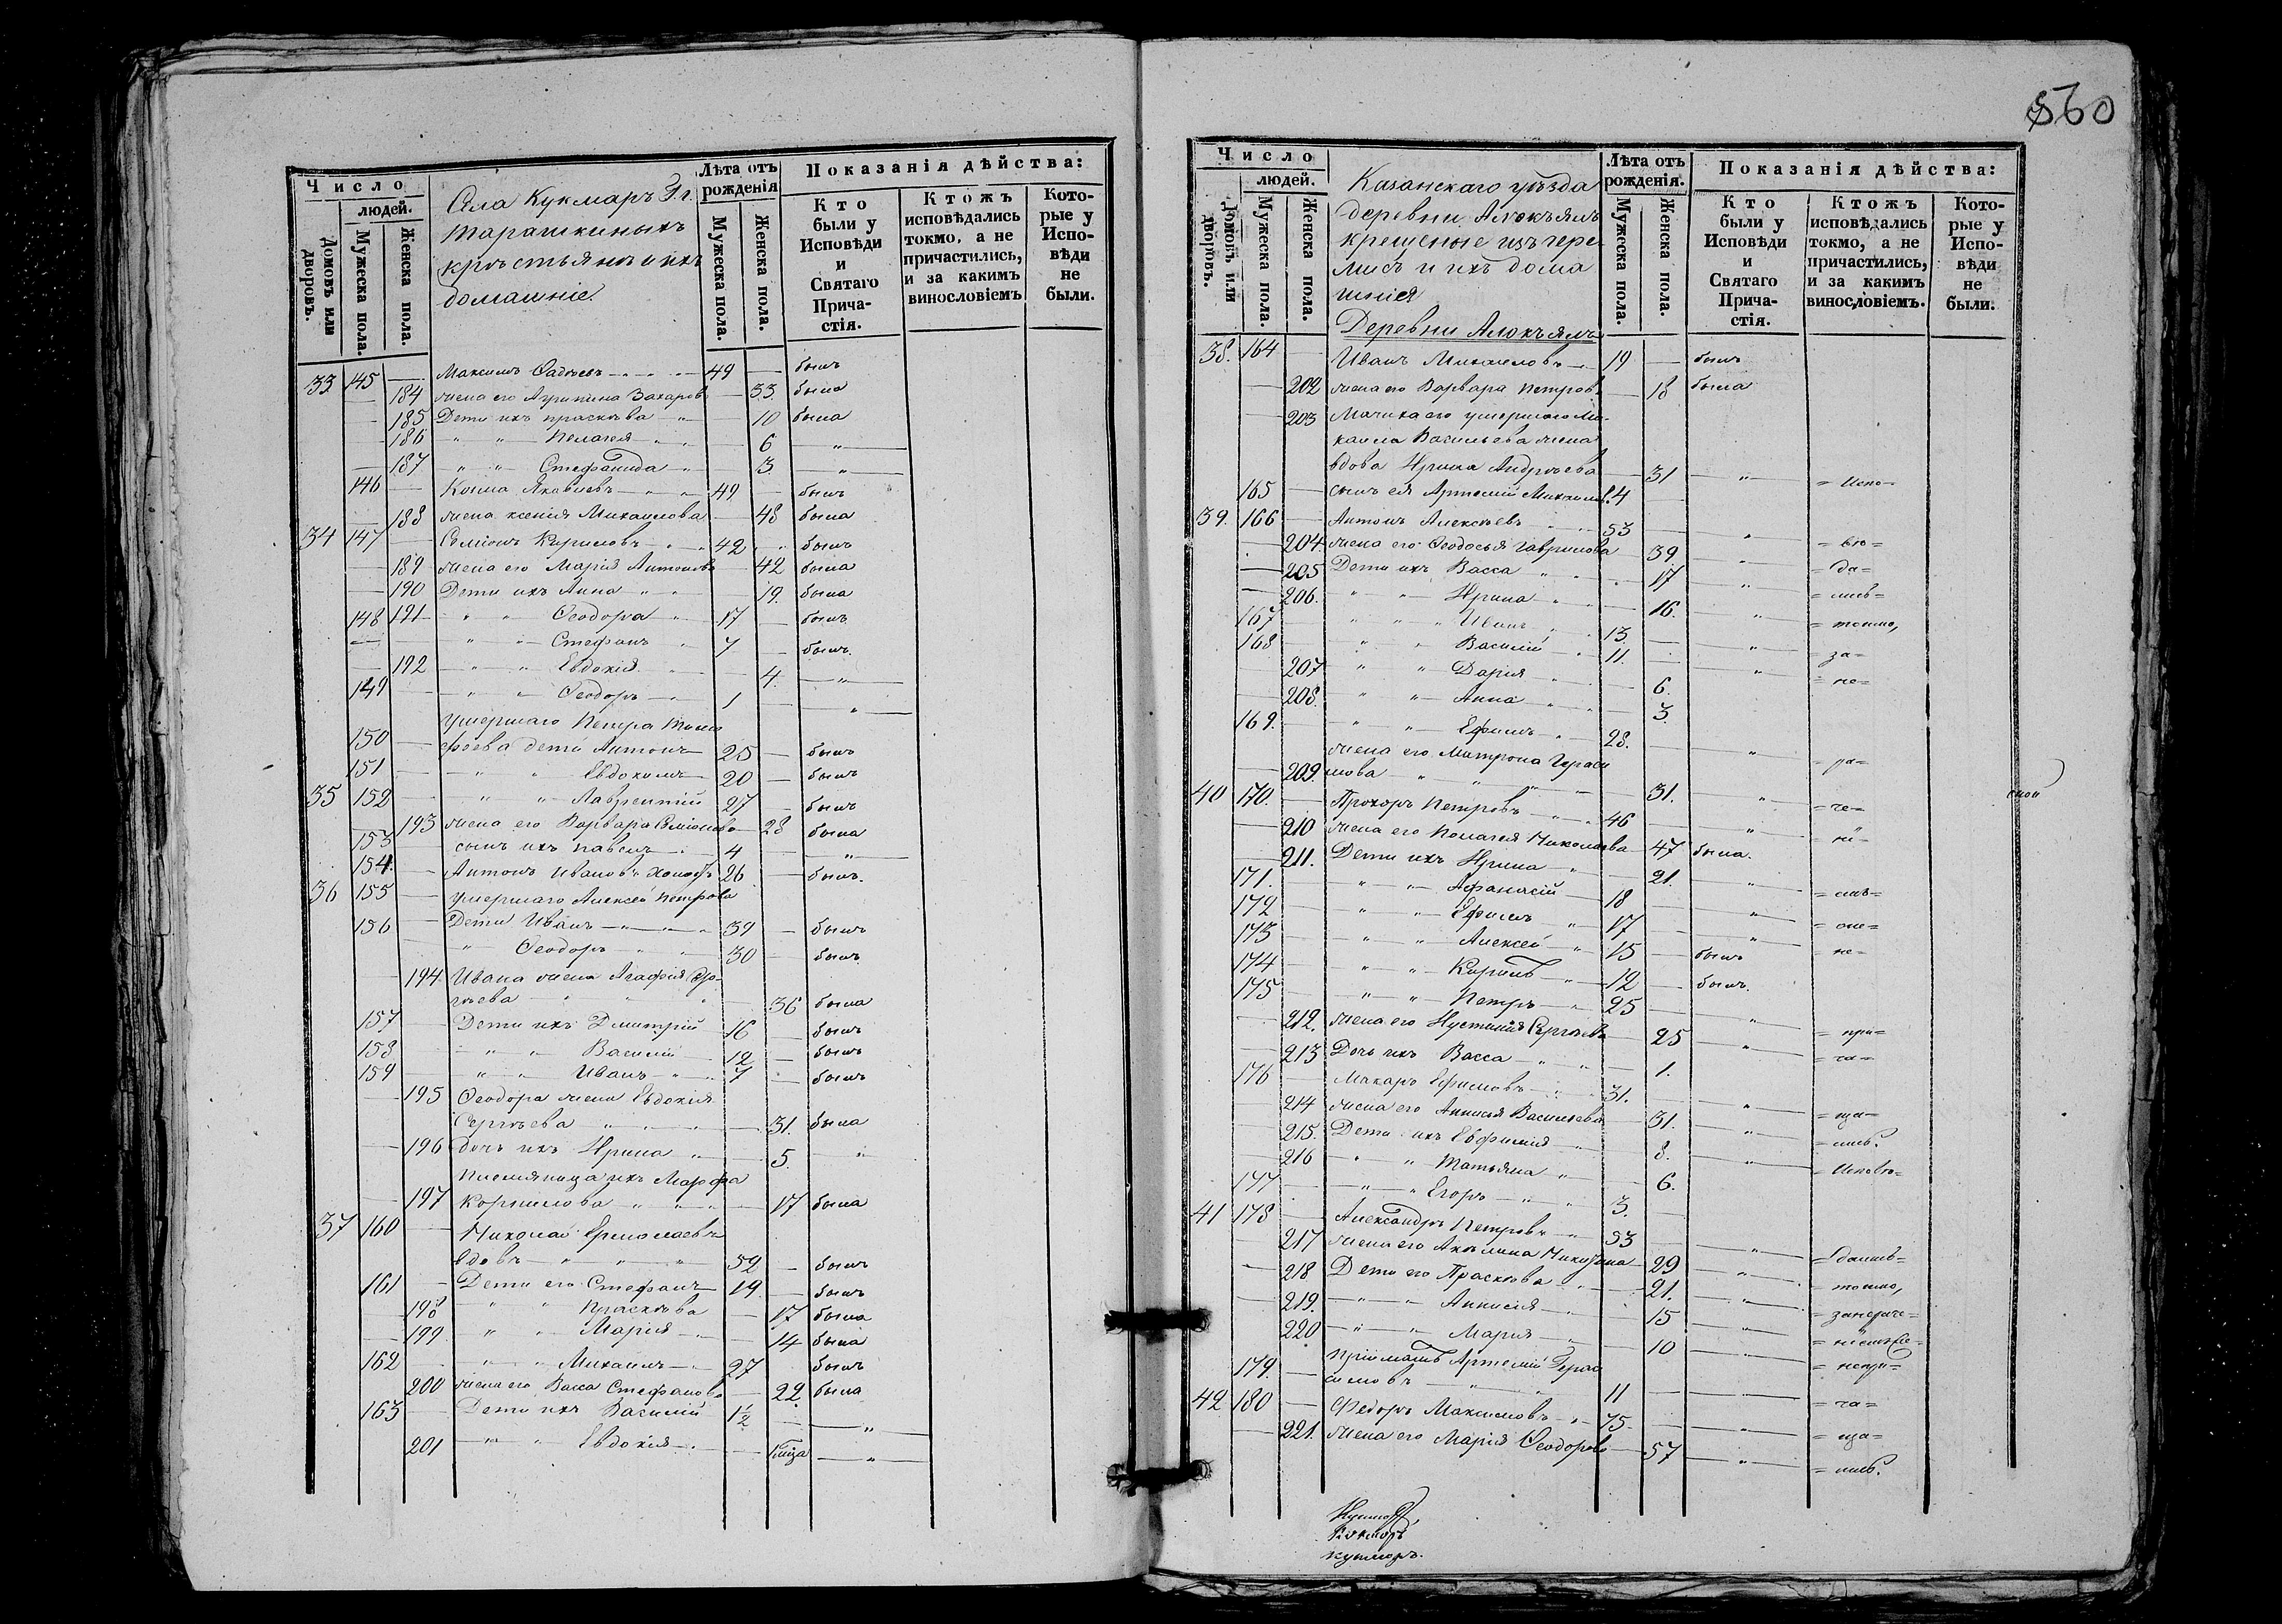 Число
людей.
Домовъ или дворовъ.
Мужеска пола.
Женска пола.
Села Кукмаръ Г.г.
Тарашкиныхъ
крестьяне и ихъ
домашніе.
Лѣта отъ
рожденія
Мужеска пола.
Женска пола.
Показанія дѣйства:
Кто
были у
Исповѣди
и
Святаго
Прича-
стія.
Ктожъ
исповѣдались
токмо, а не
причастились,
и за какимъ
винословіемъ
Кото-
рые у
Испо-
вѣди
не
были.
33 145 — Максимъ Фадѣевъ 49 — былъ
— 184 жена его Агрипина Захаров — 33. была
— 185 Дети ихъ праскѣва — 10 была
— 186 " " Пелагея — 6 "
— 187 " " Стефанида — 3. "
146 — Козма Яковлевъ 49 — былъ
— 188 жена ксенія Михаилова — 48 была
34 147 — Семіонъ Кириловъ 42 былъ
— 189 жена его Марія Антонова — 42 была
— 190 Дети ихъ Анна — 19. была
148 191 " " Ѳеодора 17 — былъ
— " " Стефанъ 7 — былъ.
— 192 " " Евдокія — 4. "
149 — " " Ѳеодоръ 1 — "
умершаго Петра Тимо
150 — фѣева дети Антонъ 25 — былъ
151 — " " Евдокимъ 20 — былъ
35 152 — " " Лаврентій 27 — былъ
— 193 жена его Варвара Семіонова — 28 была
153 сынъ ихъ павелъ 4 — "
154. — Антонъ Ивановъ холостъ 26 — былъ.
36 155 — умершаго Алексея Петрова
156 — Дети Иванъ 39 — былъ
" Ѳеодоръ 30 — былъ
— 194. Ивана жена Агафія Сер-
гѣева — 36 была
157 — Дети ихъ Дмитрій 16 былъ
158 — " " Василій 12 — былъ
159 — " " Иванъ 7 — былъ
— 195 Ѳеодора жена Евдокія
Сергѣева — 31. была
— 196 дочь ихъ Ирина — 5. "
племяница ихъ Марфа
— 197 Корнилова — 17 была
37 160 — Николай Ермолаевъ
вдовъ 52 — былъ
161 — Дети его Стефанъ 19. — былъ
— 198 " " Праскѣва — 17 была
— 199. " " Марія — 14 была
162 — " " Михаилъ 27 былъ
200 жена его Васса Стефанова — 22. была
163 — Дети ихъ Василій 1½ — "
201 " " Евдокія — "
560
Число
людей.
Домовъ или дворовъ.
Мужеска пола.
Женска пола.
Казанскаго уѣзда
деревни Алокъямъ
крещеные изъ чере-
мисъ и ихъ дома
шнія
Деревни Алокъямъ
Лѣта отъ
рожденія.
Мужеска пола.
Женска пола.
Показанія дѣйства:
Кто
были у
Исповѣди
и
Святаго
Прича-
стія.
Ктожъ
исповѣдались
токмо, а не
причастились,
и за какимъ
винословіемъ.
Кото-
рые у
Испо-
вѣди
не
были.
38. 164 — Иванъ Михаиловъ 19 — былъ
— 202 жена его Варвара Петров. — 18 была
— 203 Мачиха его умершаго Ми-
хаила Васильева жена
вдова Ирина Андрѣева — 31 " = Испо=
165 — сынъ ея Артемій Михаил. 4 —
39. 166 — Антонъ Алексѣевъ 53 — " = вѣ=
— 204 жена его Ѳеодосья Гаврилова 39. " = да=
— 205 Дети ихъ Васса — 17 " = лись=
— 206. " " Ирина — 16. " = токмо,
167 — " " Иванъ 13. — " = за=
168 " " Василій 11. — " = не=
207 " " Дарія — 6.
— 208. " " Анна — 3.
169. — " " Ефимъ 28. — " = ра=
жена его Матрона Гераси
— 209. мова — 31. " = че=
40 170. — Прохоръ Петровъ 46 — " = ні=
— 210 жена его Пелагея Николаева — 47 была.
— 211. Дети ихъ Ирина — 21. " = емъ=
171. — " " Афанасій 18 — "
172 — " " Ефимъ 17 — "
173 — " " Алексей 15 — былъ = не=
174 — " " Кирилъ 12 — былъ.
175 — " " Петръ 25 — " = при=
— 212. жена его Иустинія Сергѣева 25 " = ча=
— 213 Дочь ихъ Васса — 1.
176 — Макаръ Ефимовъ 31. — " = ща=
— 214 жена его Анисия Васильева 31. " = лись.
— 215. Дети ихъ Евфимия — 8. " = Исповѣ=
— 216 " " Татьяна — 6.
177 " " Егоръ 3. —
41 178 — Александръ Петровъ 33 — " = дались=
— 217 жена его Акѣлина Никитина 29 " = токмо,
— 218 Дети его Праскѣва — 21. " = занераче=
219. " " Анисія — 15 "
220 " " Мария — 10 " = непри=
179. — пріимышъ Артемій Гера
симовъ 11 — " = ча=
42. 180 — Ѳедоръ Максимовъ 75. — " = ща=
— 221. жена его Марія Ѳеодорова — 57 " = лись.